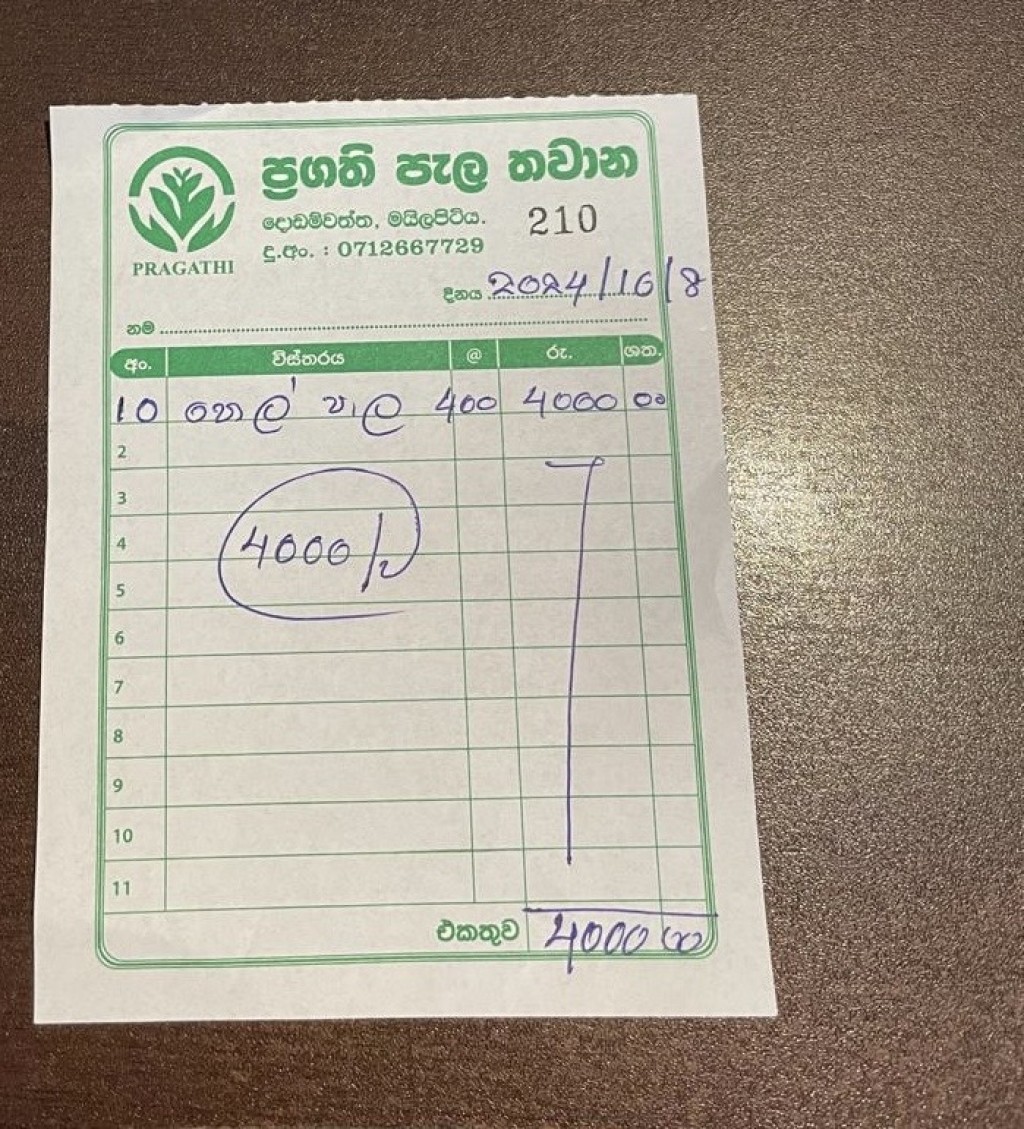 ප්‍රගති පැල තවාන
දොඩම්වත්ත, මයිලපිටිය.
දු.අං. : 0712667729
210
PRAGATHI
දිනය 2024/10/8
නම
අං. විස්තරය @ රු. ශත.
10 පොල් පැල 400 4000 00
2
3
4
4000/-
5
6
7
8
9
10
11
එකතුව 4000 00